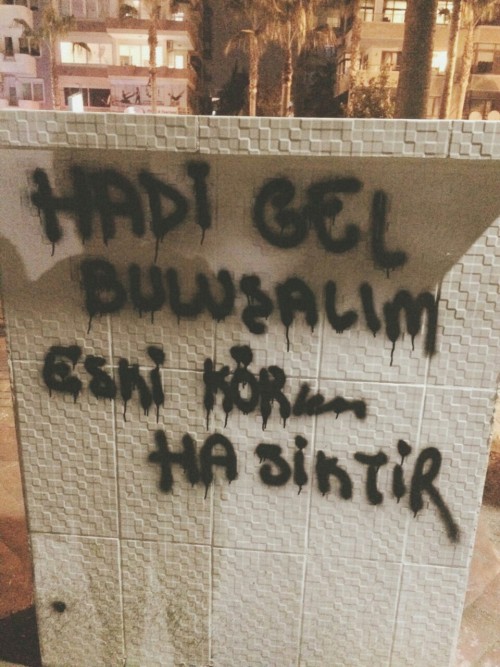 HADİ GEL
BULUŞALIM
ESKİ KÖR
HA SİKTİR